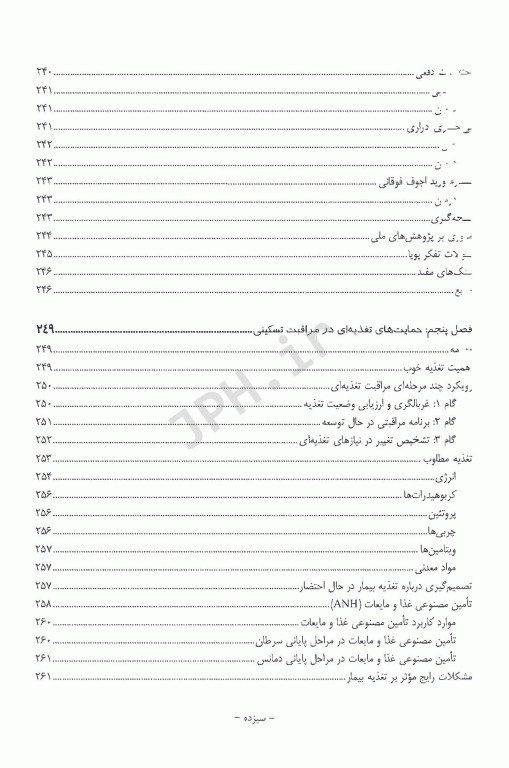 دفعی ۲۴۰
۲۴۱
۲۴۱
دراری ۲۴۱
۲۴۲
۲۴۲
ورید اجوف فوقانی ۲۴۳
۲۴۳
۲۴۳
بر پژوهش‌های ملی ۲۴۴
تفکر پویا ۲۴۵
مفید ۲۴۶
۲۴۶
فصل پنجم: حمایت‌های تغذیه‌ای در مراقبت تسکینی ۲۴۹
۲۴۹
همیت تغذیه خوب ۲۴۹
رویکرد چند مرحله‌ای مراقبت تغذیه‌ای ۲۵۰
گام ۱: غربالگری و ارزیابی وضعیت تغذیه ۲۵۰
گام ۲: برنامه مراقبتی در حال توسعه ۲۵۱
گام ۳: تشخیص تغییر در نیازهای تغذیه‌ای ۲۵۲
تغذیه مطلوب ۲۵۳
انرژی ۲۵۴
کربوهیدرات‌ها ۲۵۶
پروتئین ۲۵۶
چربی‌ها ۲۵۶
ویتامین‌ها ۲۵۷
مواد معدنی ۲۵۷
تصمیم‌گیری درباره تغذیه بیمار در حال احتضار ۲۵۷
تأمین مصنوعی غذا و مایعات (ANH) ۲۵۸
موارد کاربرد تأمین مصنوعی غذا و مایعات ۲۶۰
تأمین مصنوعی غذا و مایعات در مراحل پایانی سرطان ۲۶۰
تأمین مصنوعی غذا و مایعات در مراحل پایانی دمانس ۲۶۱
مشکلات رایج مؤثر بر تغذیه بیمار ۲۶۱
– سیزده –
JPH.ir